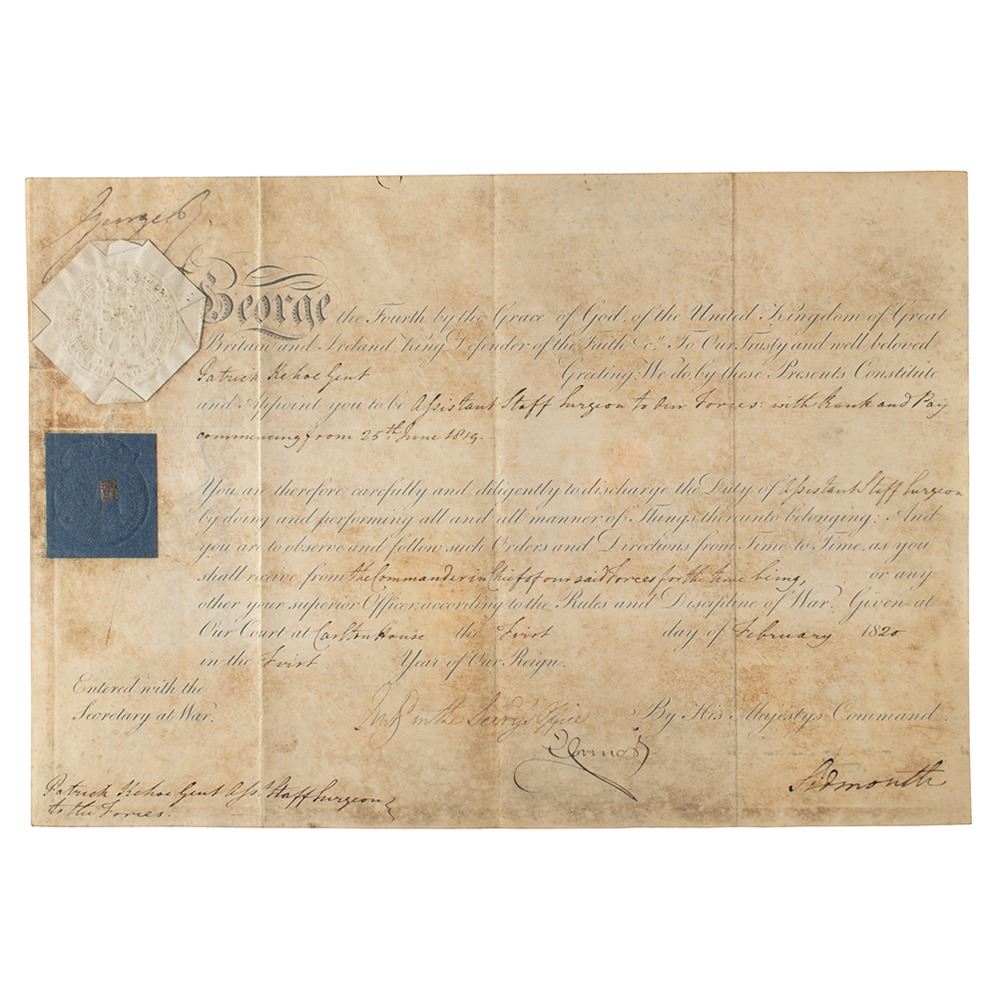 George R.
George the Fourth by the Grace of God, of the United Kingdom of Great
Britain and Ireland, King, Defender of the Faith &c.a To Our Trusty and well beloved
Patrick Kehoe Gent Greeting: We do, by these Presents Constitute
and Appoint you to be Assistant Staff Surgeon to our Forces: with Rank and Pay
commencing from 25th June 1819.
You are therefore carefully and diligently to discharge the Duty of Assistant Staff Surgeon
by doing and performing all and all manner of Things thereunto belonging: And
you are to observe and follow such Orders and Directions from Time to Time, as you
shall receive from the Commander in Chief of our said Forces for the time being, or any
other your superior Officer, according to the Rules and Discipline of War. Given at
Our Court at Carlton House the First day of February 1820
in the First Year of Our Reign.
Entered with the
Secretary at War.
in the Office
By His Majestys Command.
Sidmouth
Patrick Kehoe Gent Asst Staff Surgeon
to the Forces.